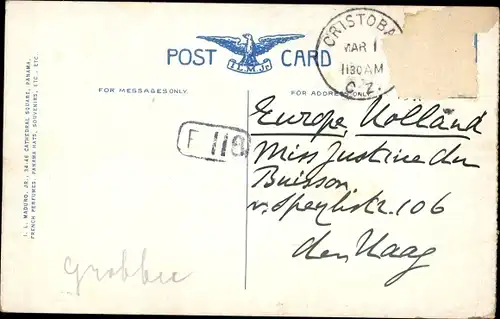 POST CARD
I.L.M.Jr.
CRISTOBA
MAR 1
1130 AM
C. Z.
FOR MESSAGES ONLY.
FOR ADDRESS ONLY
Europe, Holland
Miss Justine du
Buisson
v. Speykstr. 106
den Haag
F 118
Grobbee
I. L. MADURO, JR., 34-46 CATHEDRAL SQUARE, PANAMA.
FRENCH PERFUMES, PANAMA HATS, SOUVENIRS, ETC., ETC.